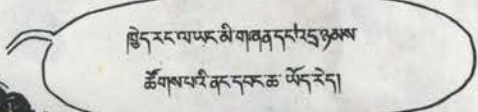 ཁྱེད་རང་ལ་ཡང་མི་གཞན་དང་འདྲ་ཉམས་
ཚོགས་པའི་ནང་དབང་ཆ་ཡོད་རེད།